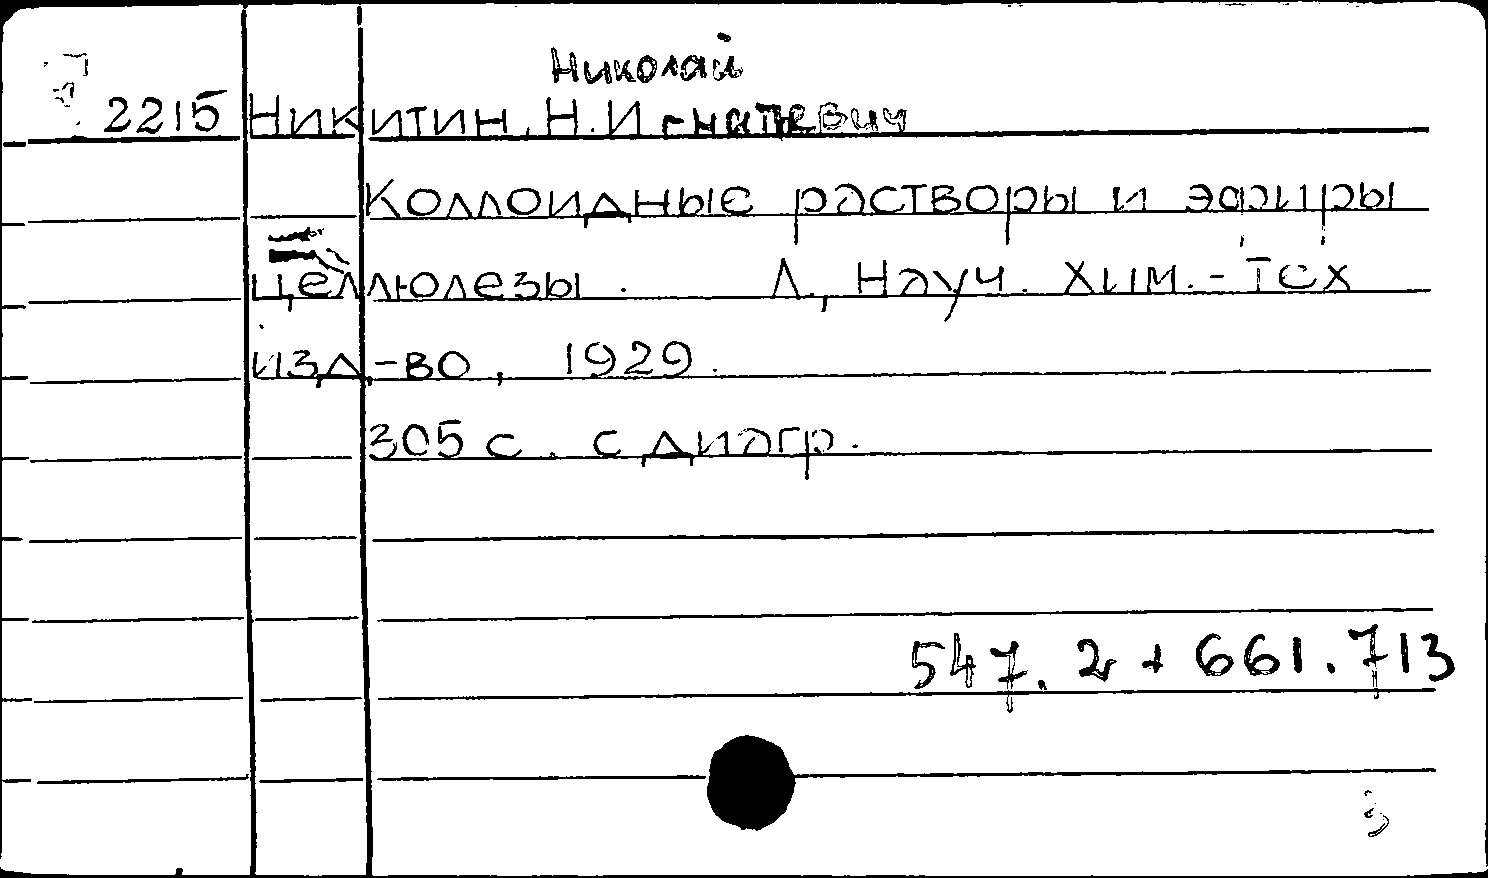 Николай
2215 Никитин, Н. Игнатьевич
Коллоидные растворы и эфиры
целлюлезы. Л., Науч. Хим.-Тех
изд-во, 1929.
305 с. с диагр.
547.2 + 661.713
3